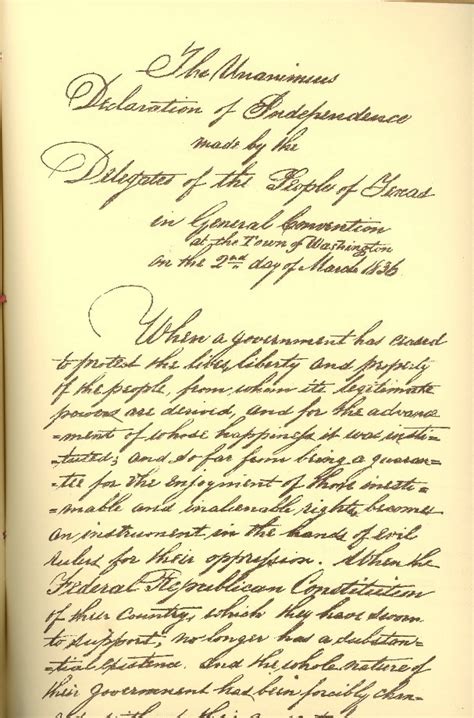 The Unanimous
Declaration of Independence
made by the
Delegates of the People of Texas
in General Convention
at the Town of Washington
on the 2nd day of March 1836
When a government has ceased
to protect the lives, liberty and property
of the people, from whom its legitimate
powers are derived, and for the advance
=ment of whose happiness it was insti=
=tuted; and so far from being a guaran=
=tee for the enjoyment of those inesti=
=mable and inalienable rights, becomes
an instrument in the hands of evil
rulers for their oppression. When the
Federal Republican Constitution
of their Country, which they have sworn
to support, no longer has a substan=
=tial existence. And the whole nature of
their government has been forcibly chan=